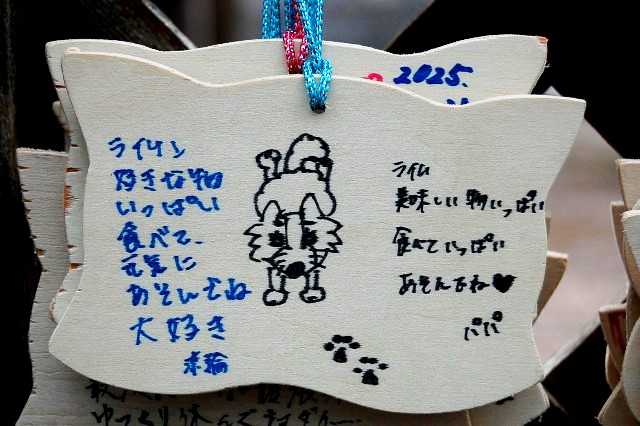 2025.
ライム
好きな物
いっぱい
食べて、
元気に
あそんでね
大好き
ライム
美味しい物いっぱい
食べていっぱい
あそんでね♥
パパ
ゆっくり休んで